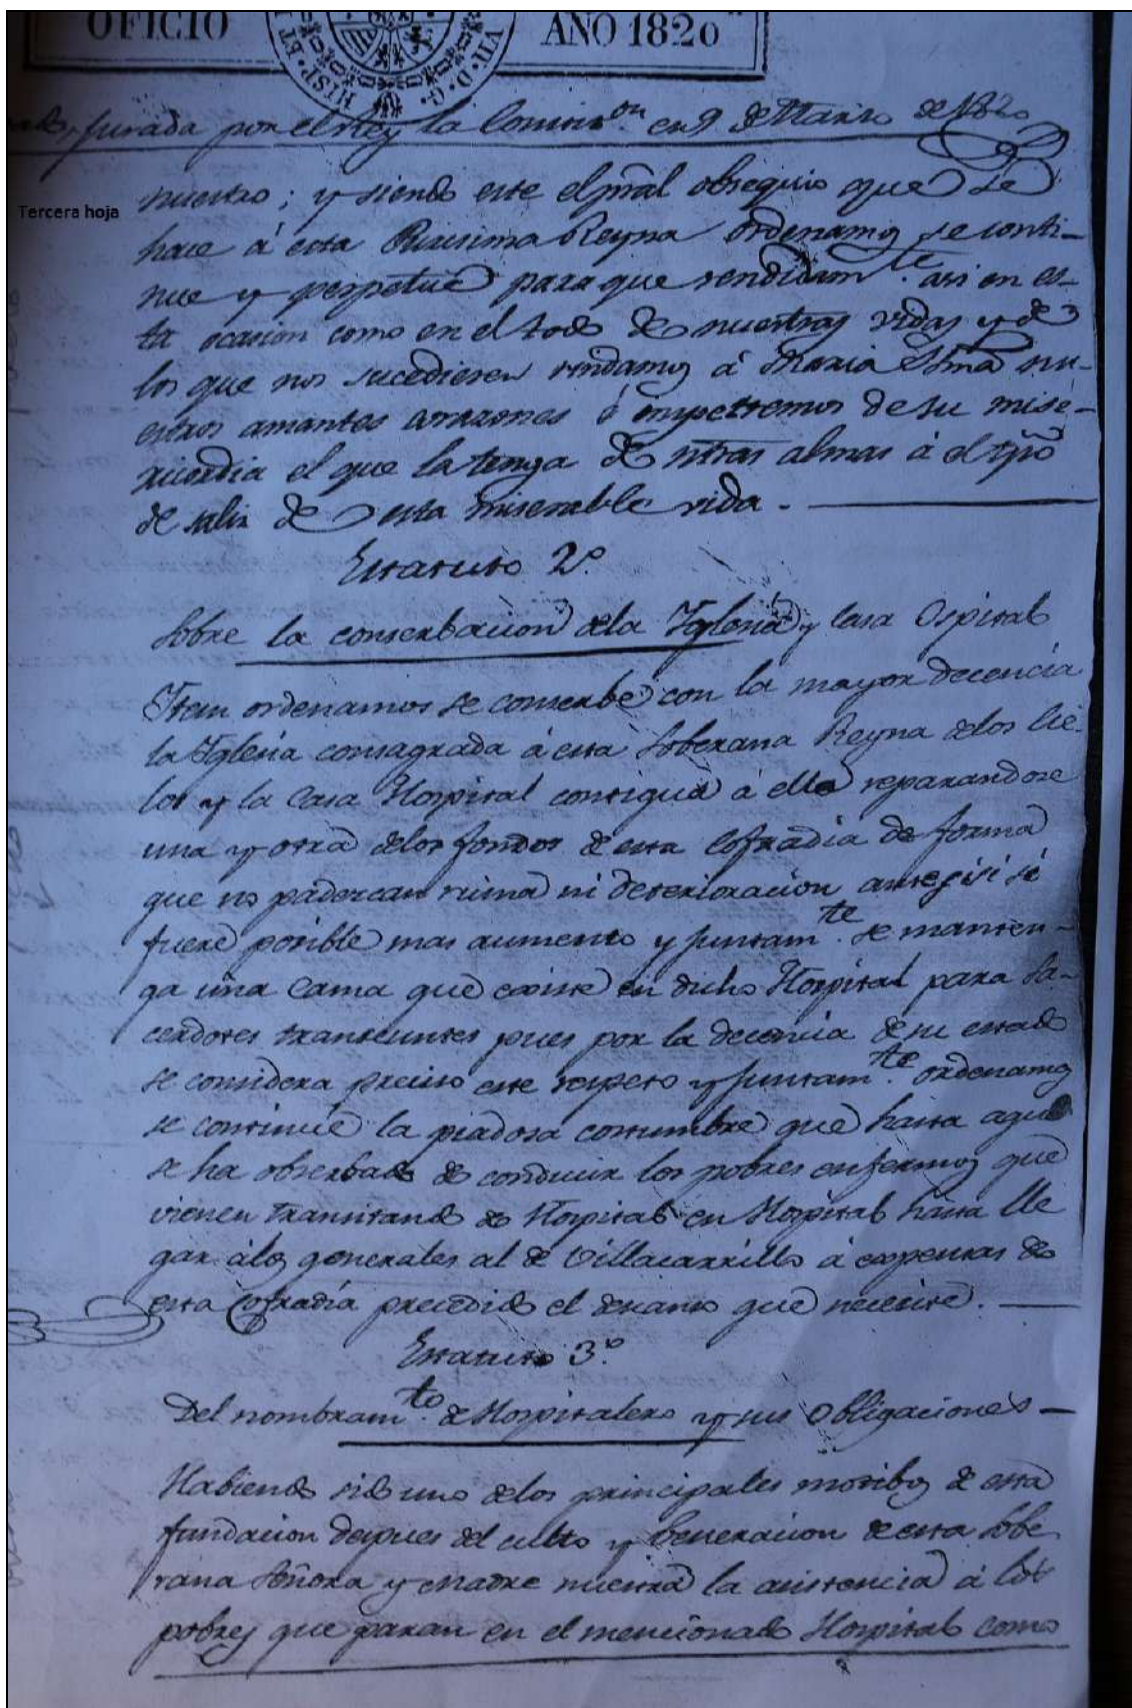 OFICIO
AÑO 1820
HISP. ET
VII. D. G.
jurada por el Rey la Constitn.on en 9 de Marzo de 1820
Tercera hoja
nuestro; y siendo este el pral obsequio que se
hace á esta Purisima Reyna ordenamos se conti-
nue y perpetue para que rendidam.te asi en es-
ta ocasion como en el todo de nuestras vidas y de
los que nos sucedieren rindamos á Maria Stma nu-
estros amantes corazones é impetremos de su mise-
ricordia el que la tenga de ntras almas á el tpo
de salir de esta miserable vida.
Estatuto 2º.
Sobre la conserbacion dela Yglesia y Casa Ospital
Ytem ordenamos se conserbe con la mayor decencia
la Yglesia consagrada á esta Soberana Reyna delos Cie-
los y la Casa Hospital contigua á ella reparandose
una y otra delos fondos de esta Cofradia de forma
que no padezcan ruina ni deterioracion antes si si
fuere posible mas aumento y juntam.te se manten-
ga una Cama que existe en dicho Hospital para Sa-
cerdotes transeuntes pues por la decencia de su estado
se considera preciso este respeto y juntam.te ordenamos
se continúe la piadosa costumbre que hasta aqui
se ha obserbado de conducir los pobres enfermos que
vienen transitando de Hospital en Hospital hasta lle
gar álos generales al de Villacarrillo á expensas de
esta Cofradía precedido el descanso que necesite.
Estatuto 3º.
Del nombram.to de Hospitalero y sus Obligaciones
Habiendo sido uno delos principales motibos de esta
fundacion despues del culto y beneracion de esta Sobe
rana Señora y Madre nuestra la asistencia á los
pobres que paran en el mencionado Hospital como